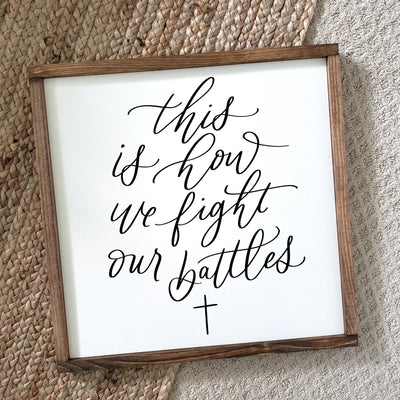 this
is how
we fight
our battles